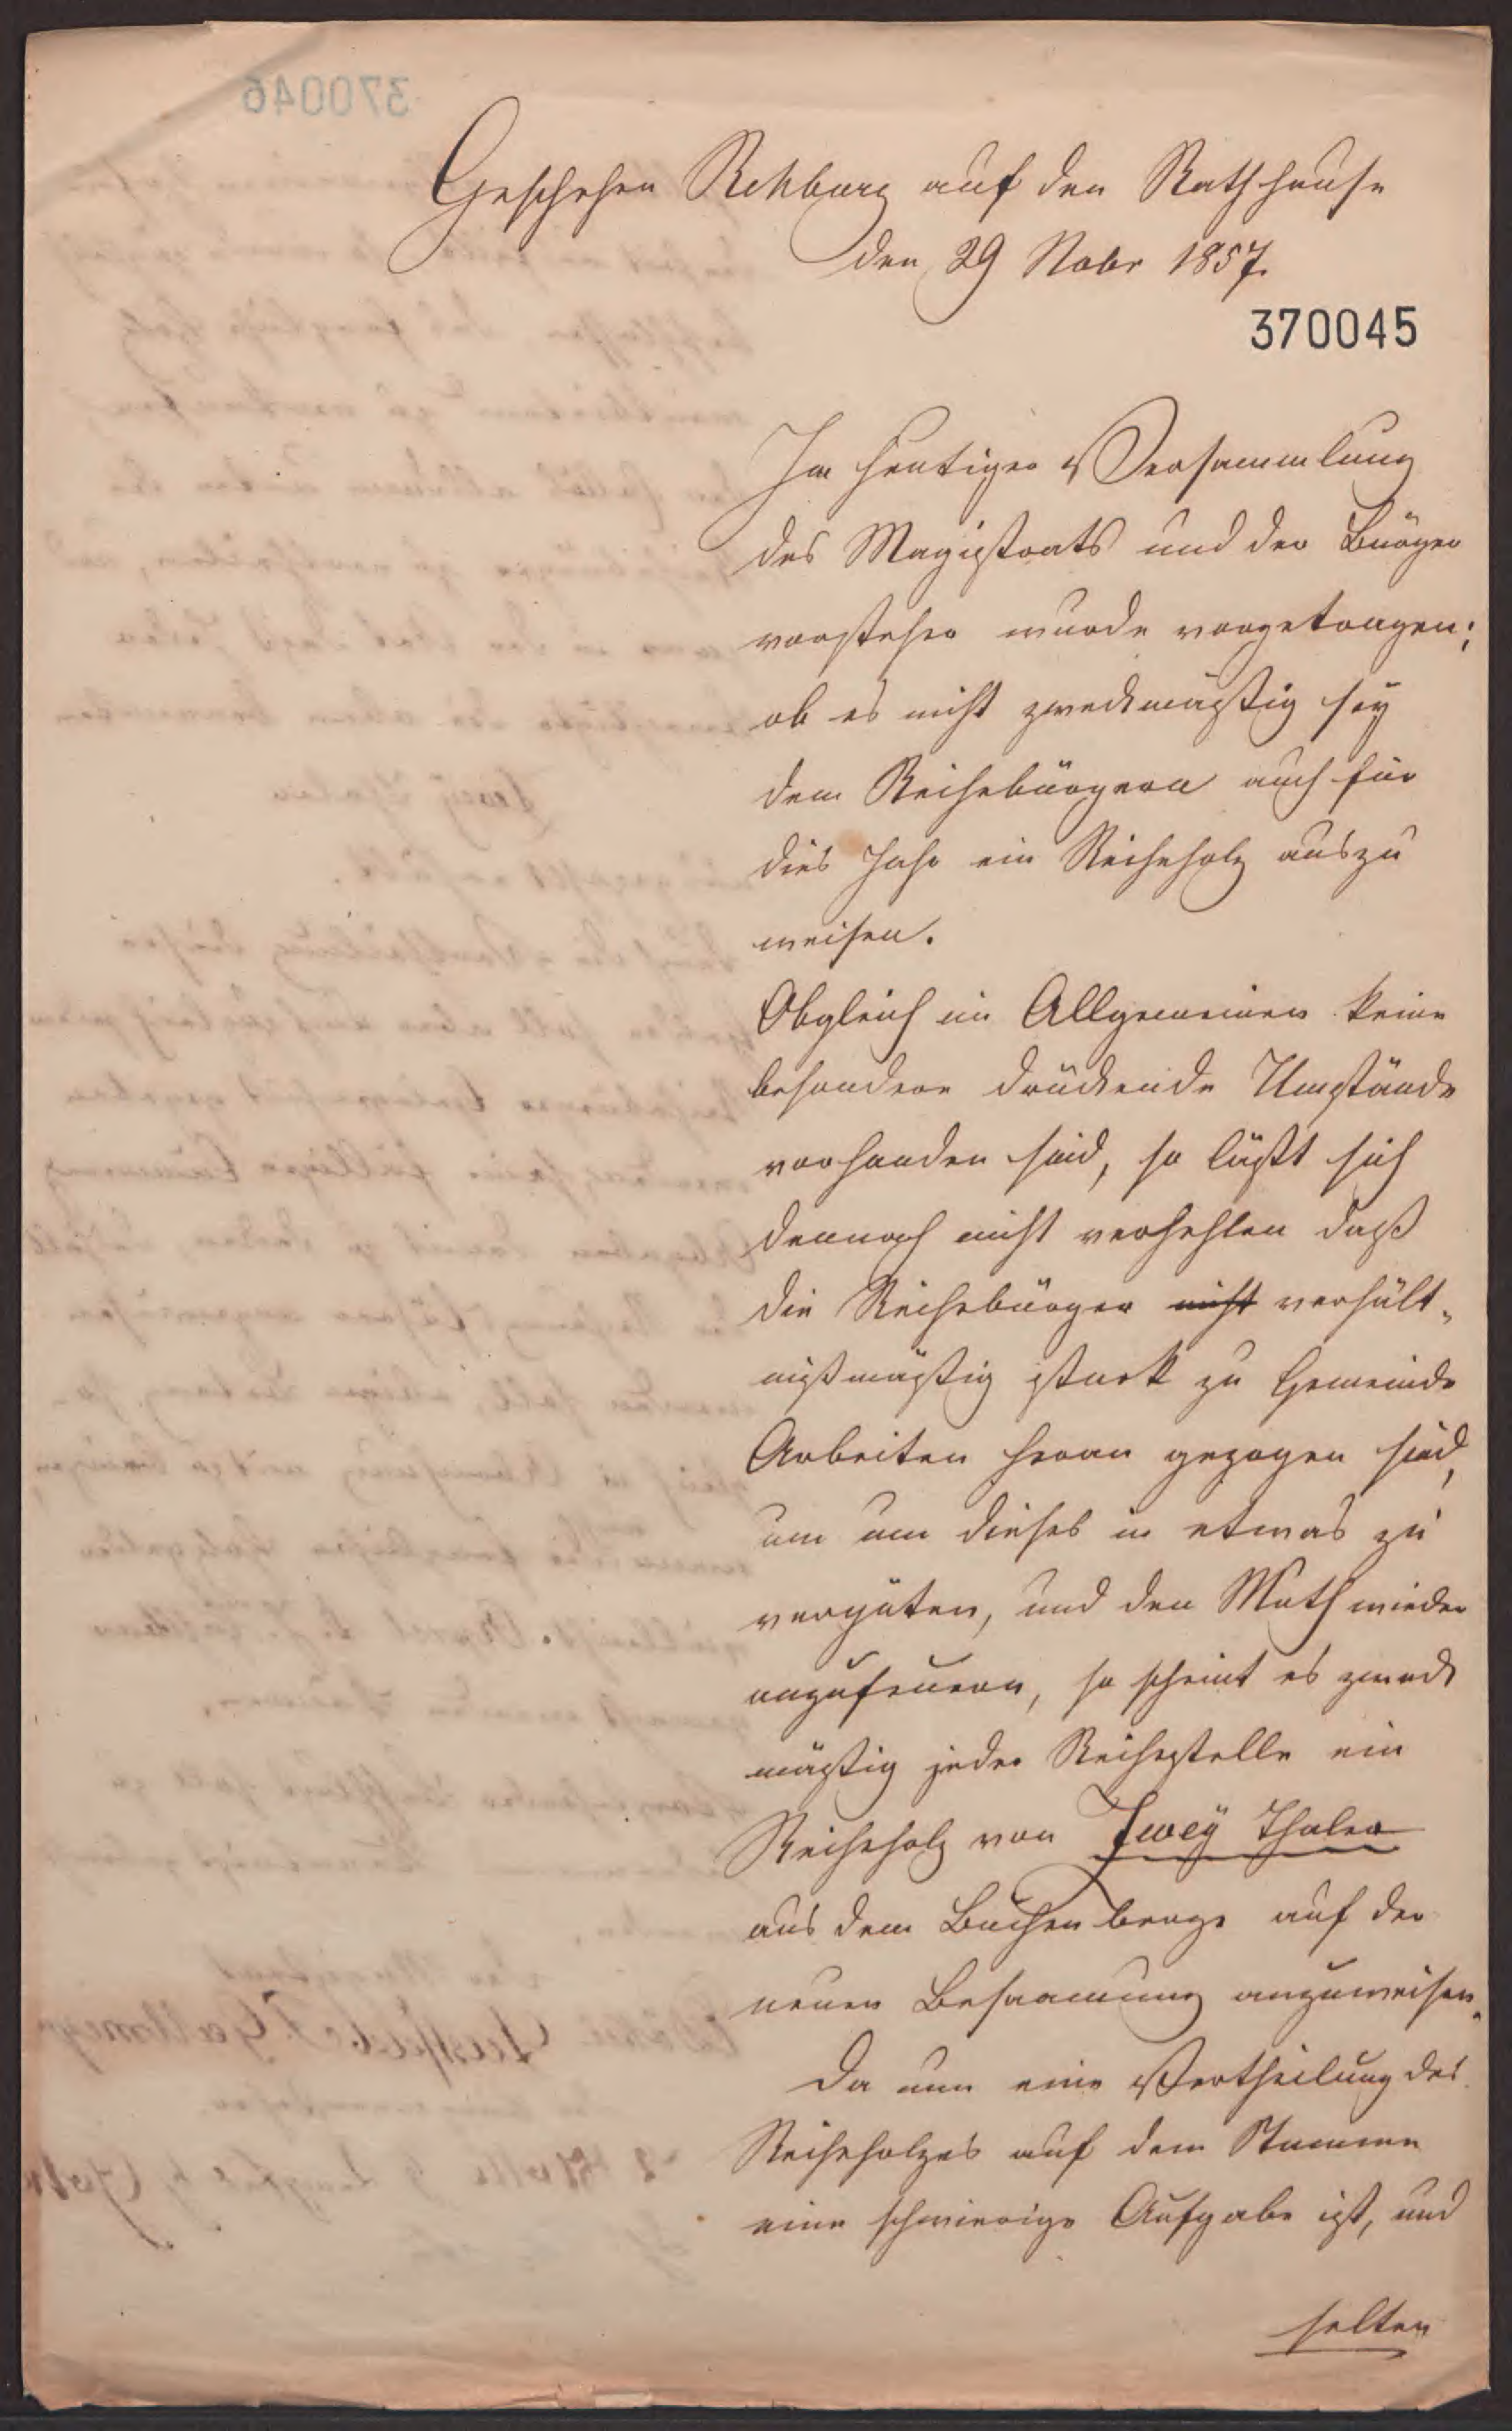 370046
Geschehen Rehburg auf den Rathhause
den 29 Nobr 1857.
370045
In heutiger Versammlung
des Magistrats und der Bürger
vorsteher wurde vorgetragen;
ob es nicht zweckmäßig sey
dem Reihebürgern auch für
dies Jahr ein Reiheholz auszu
weisen.
Obgleich im Allgemeinen keine
besondere drückende Umstände
vorhanden sind, so läßt sich
dennoch nicht verhehlen daß
die Reihebürger nicht verhält-
nißmäßig stark zu Gemeinde
Arbeiten heran gezogen sind,
um um dieses in etwas zu
vergüten, und den Muth wieder
anzufeuern, so scheint es zweck
mäßig jeder Reihestelle ein
Reiheholz von Zwey Thaler
aus dem Buchenberge auf der
neuen Besaamung anzuweisen.
Da nun eine Vertheilung des
Reiheholzes auf dem Stamme
eine schwierige Aufgabe ist, und
selten